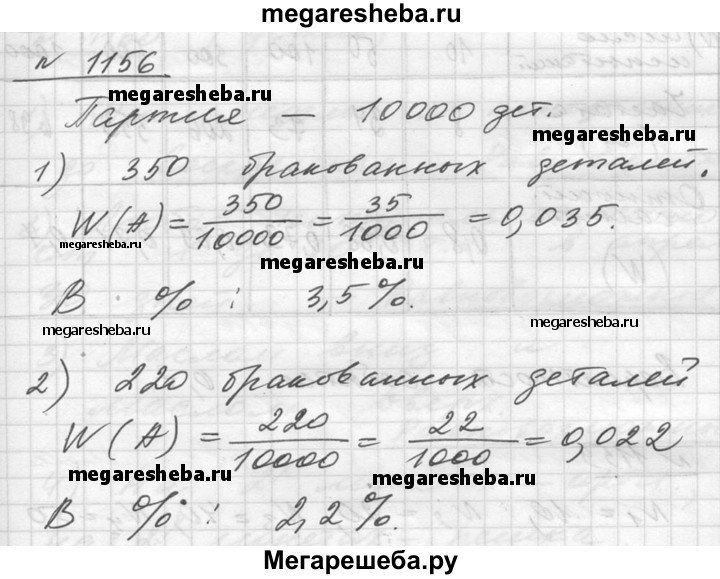 megaresheba.ru
№ 1156
megaresheba.ru
Партия — 10000 дет.
1) 350 бракованных деталей.
W(A) = 350/10000 = 35/1000 = 0,035.
megaresheba.ru
megaresheba.ru
В % : 3,5%.
megaresheba.ru
megaresheba.ru
2) 220 бракованных деталей
W(A) = 220/10000 = 22/1000 = 0,022
megaresheba.ru
megaresheba.ru
В % : 2,2%.
Мегарешеба.ру